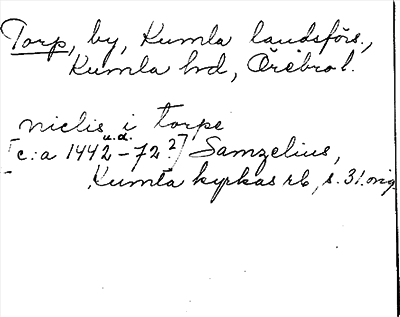 Torp, by, Kumla landsförs.,
Kumla hd, Örebro l.
niclis i torpe
u.d.
[c:a 1442–72?] Samzelius,
Kumla kyrkas rb, s. 31. orig.